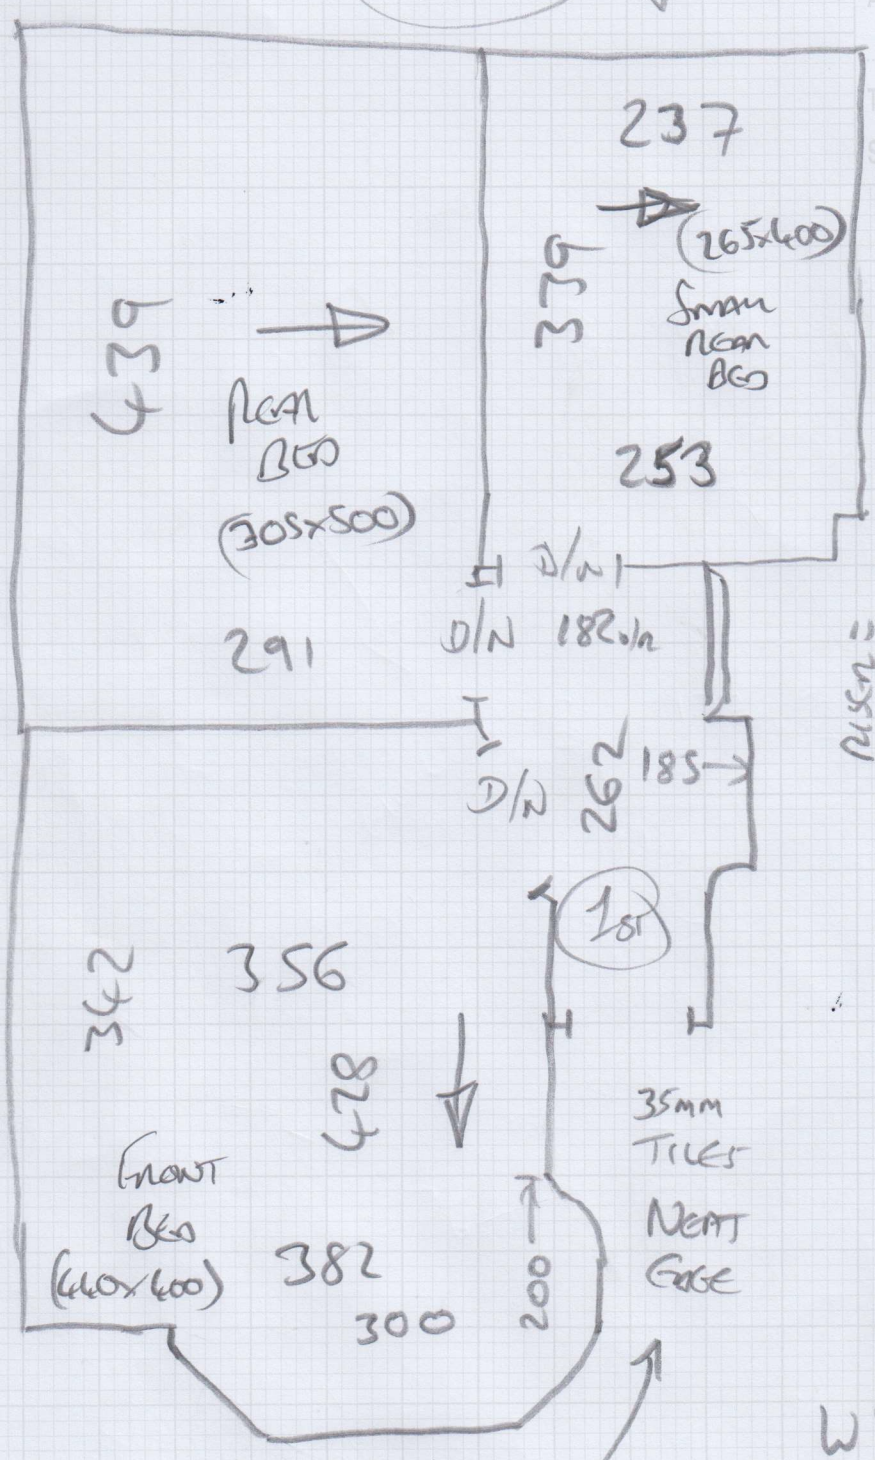 237
(265x400)
339
SMALL
REAR
BED
439
REAR
BED
(305x500)
253
D/N
D/N
182 o/a
291
RISER =
262
185
D/N
1ST
342
356
428
35mm
TILES
NEAT
EDGE
FRONT
BED
(440x400)
382
300
200
W